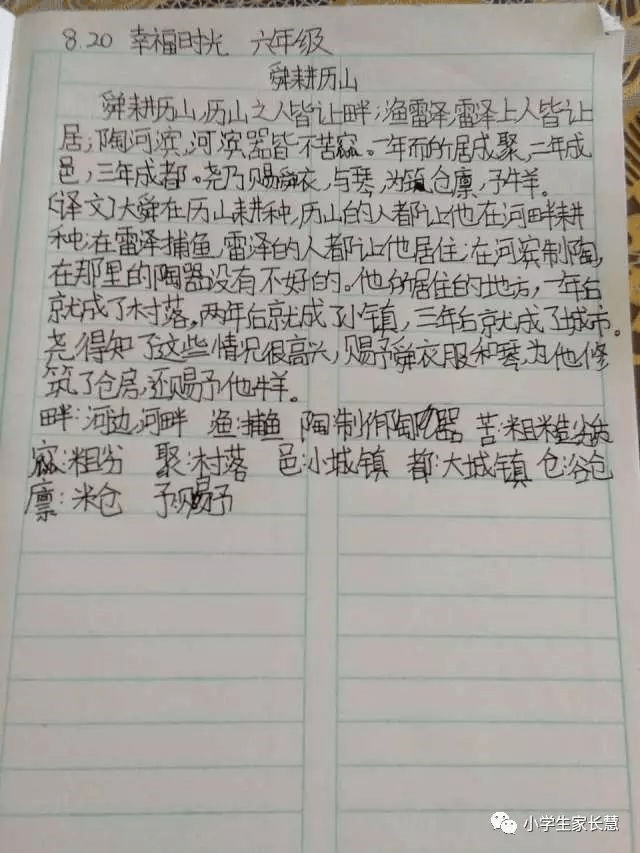 8.20 幸福时光 六年级
舜耕历山
舜耕历山,历山之人皆让畔;渔雷泽,雷泽上人皆让
居;陶河滨,河滨器皆不苦窳。一年而所居成聚,二年成
邑,三年成都。尧乃赐舜衣,与琴,为筑仓廪,予牛羊。
(译文)大舜在历山耕种,历山的人都让他在河畔耕
种;在雷泽捕鱼,雷泽的人都让他居住;在河宾制陶,
在那里的陶器没有不好的。他的居住的地方,一年后
就成了村落,两年后就成了小镇,三年后就成了城市。
尧得知了这些情况很高兴,赐予舜衣服和琴,为他修
筑了仓房,还赐予他牛羊。
畔:河边,河畔 渔:捕鱼 陶:制作陶器 苦:粗糙
窳:粗劣 聚:村落 邑:小城镇 都:大城镇 仓:谷仓
廪:米仓 予:赐予
小学生家长慧